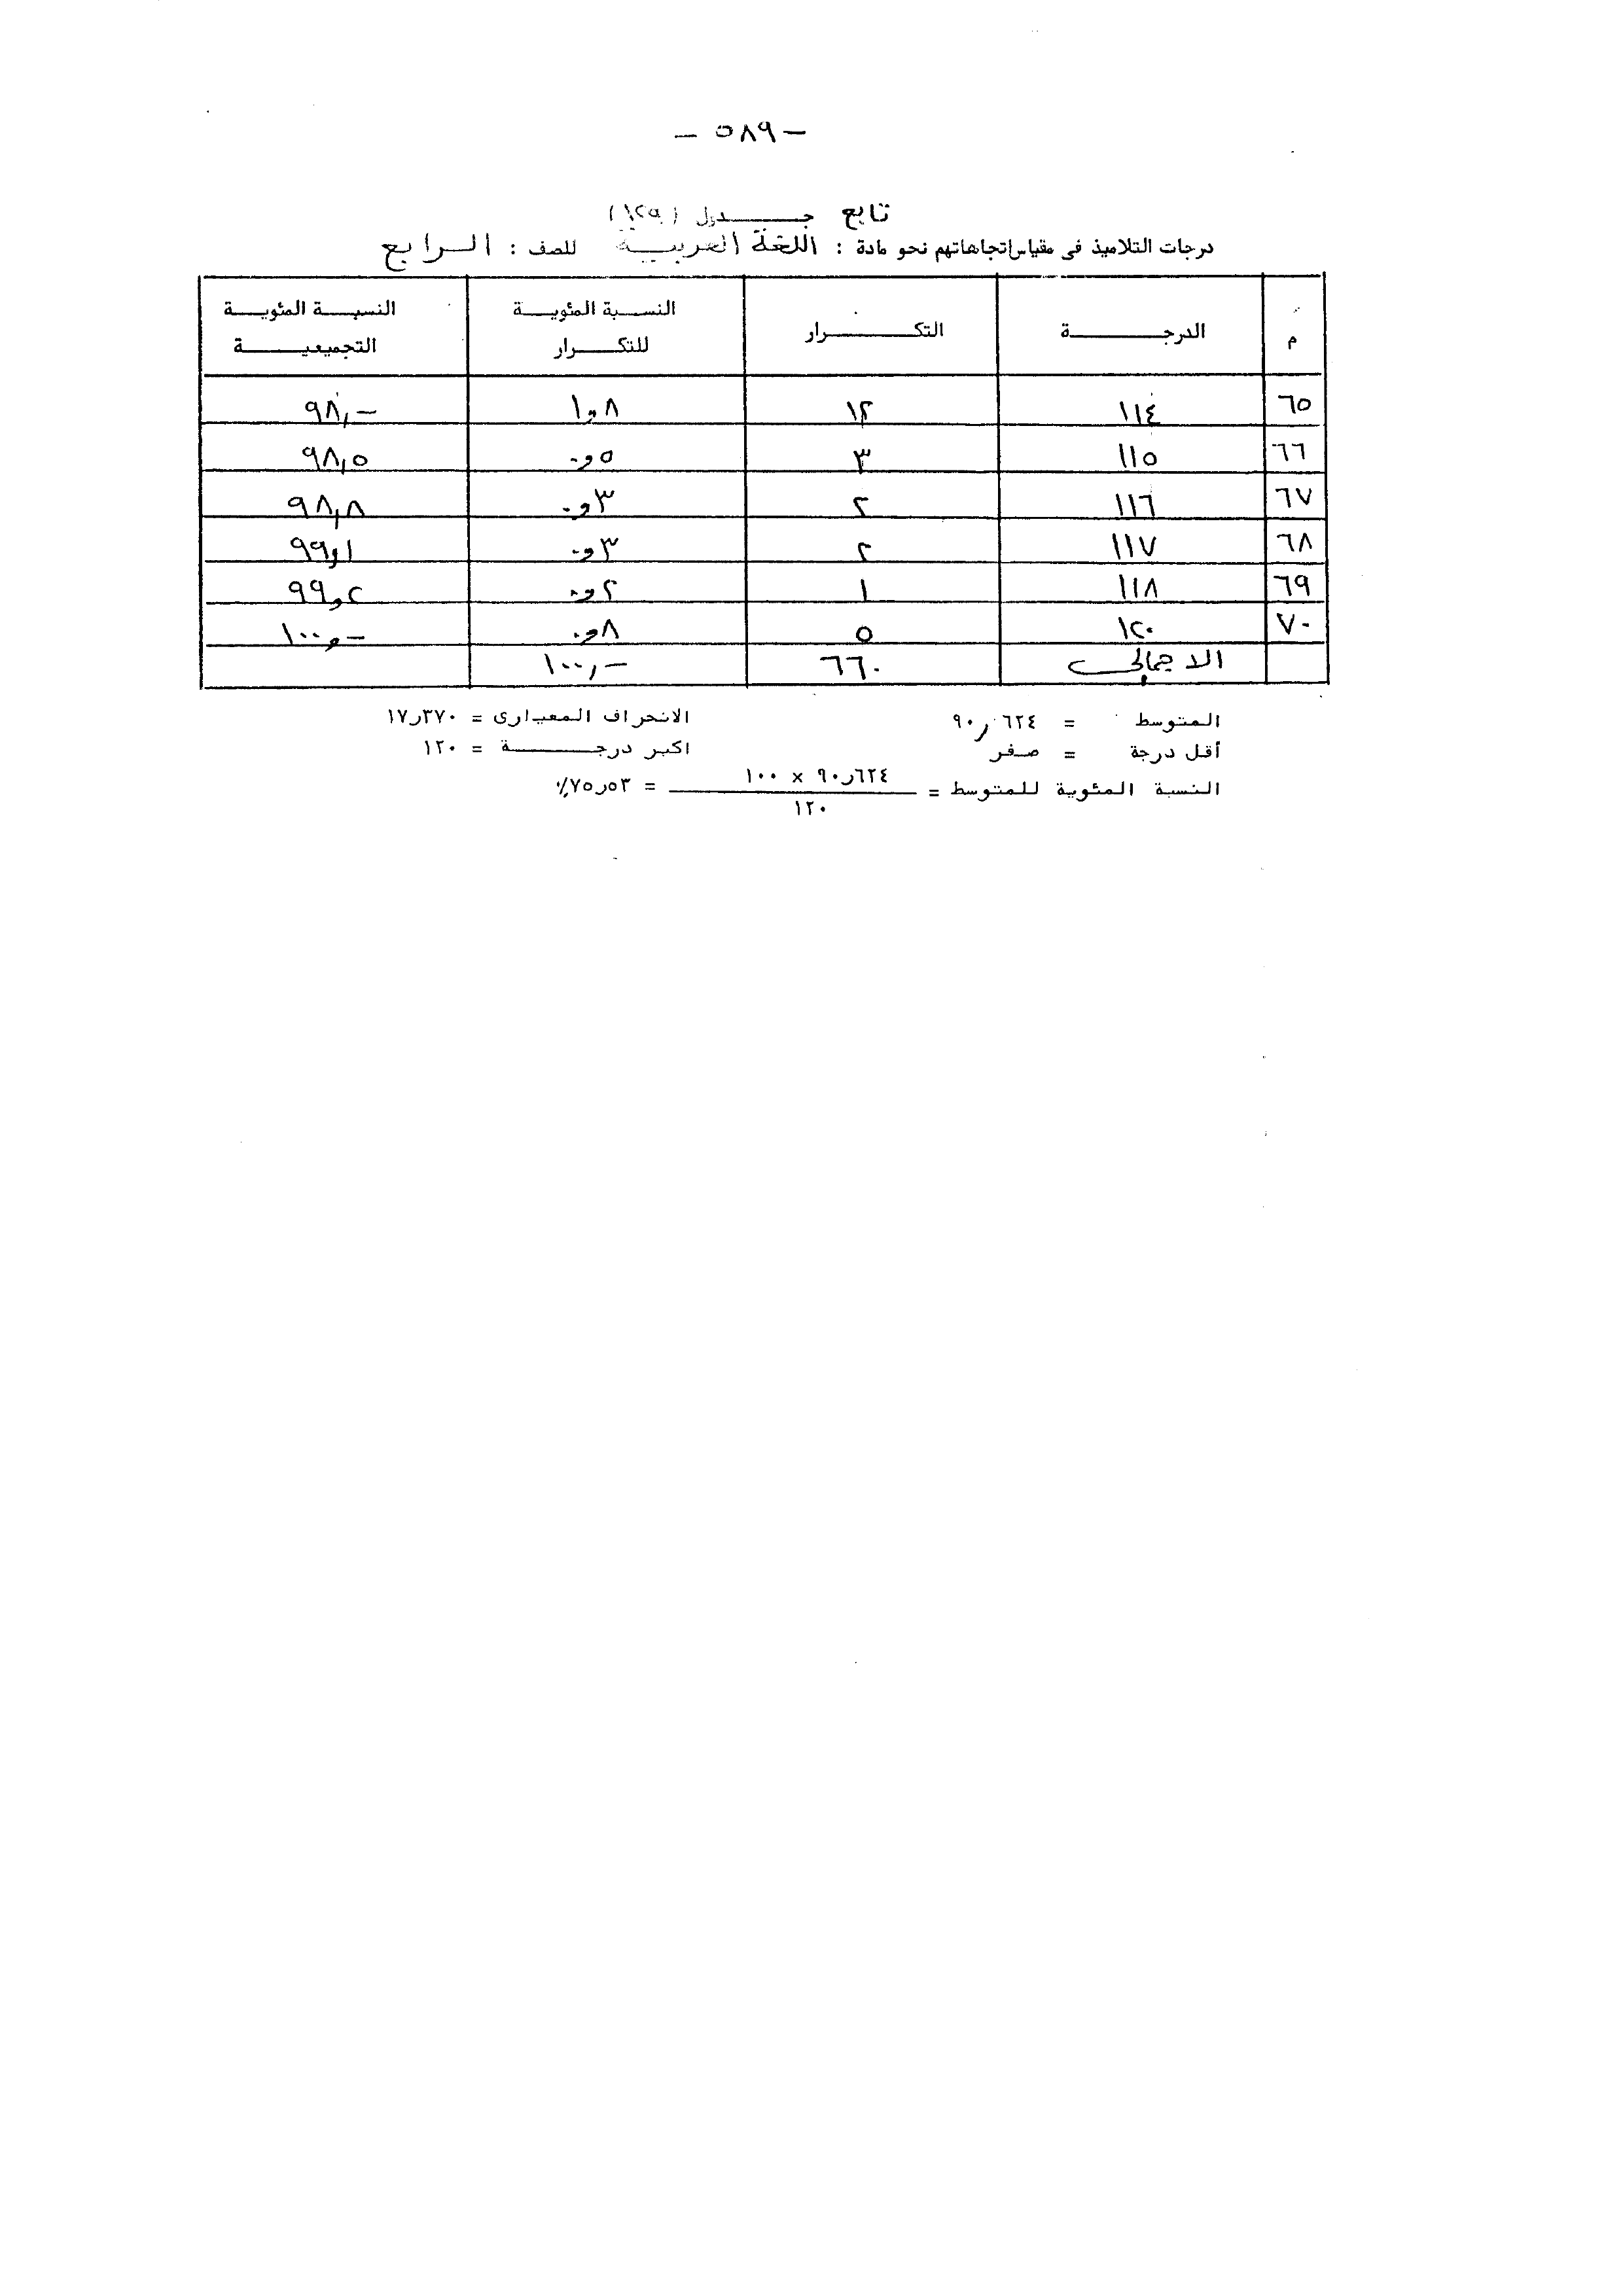 - ٥٨٩ -
تابع جدول (١٢٩)
درجات التلاميذ فى مقياس اتجاهاتهم نحو مادة : اللغة العربية للصف : الرابع
م الدرجة التكرار النسبة المئوية للتكرار النسبة المئوية التجميعية
٦٥ ١١٤ ١٢ ١,٨ ٩٨,-
٦٦ ١١٥ ٣ ٠,٥ ٩٨,٥
٦٧ ١١٦ ٢ ٠,٣ ٩٨,٨
٦٨ ١١٧ ٢ ٠,٣ ٩٩,١
٦٩ ١١٨ ١ ٠,٢ ٩٩,٢
٧٠ ١٢٠ ٥ ٠,٨ ١٠٠,-
الاجمالى ٦٦٠ ١٠٠,-
المتوسط = ٩٠,٦٢٤ الانحراف المعيارى = ١٧,٣٧٠
أقل درجة = صفر اكبر درجة = ١٢٠
النسبة المئوية للمتوسط = ٩٠,٦٢٤ × ١٠٠ / ١٢٠ = ٧٥,٥٣٪